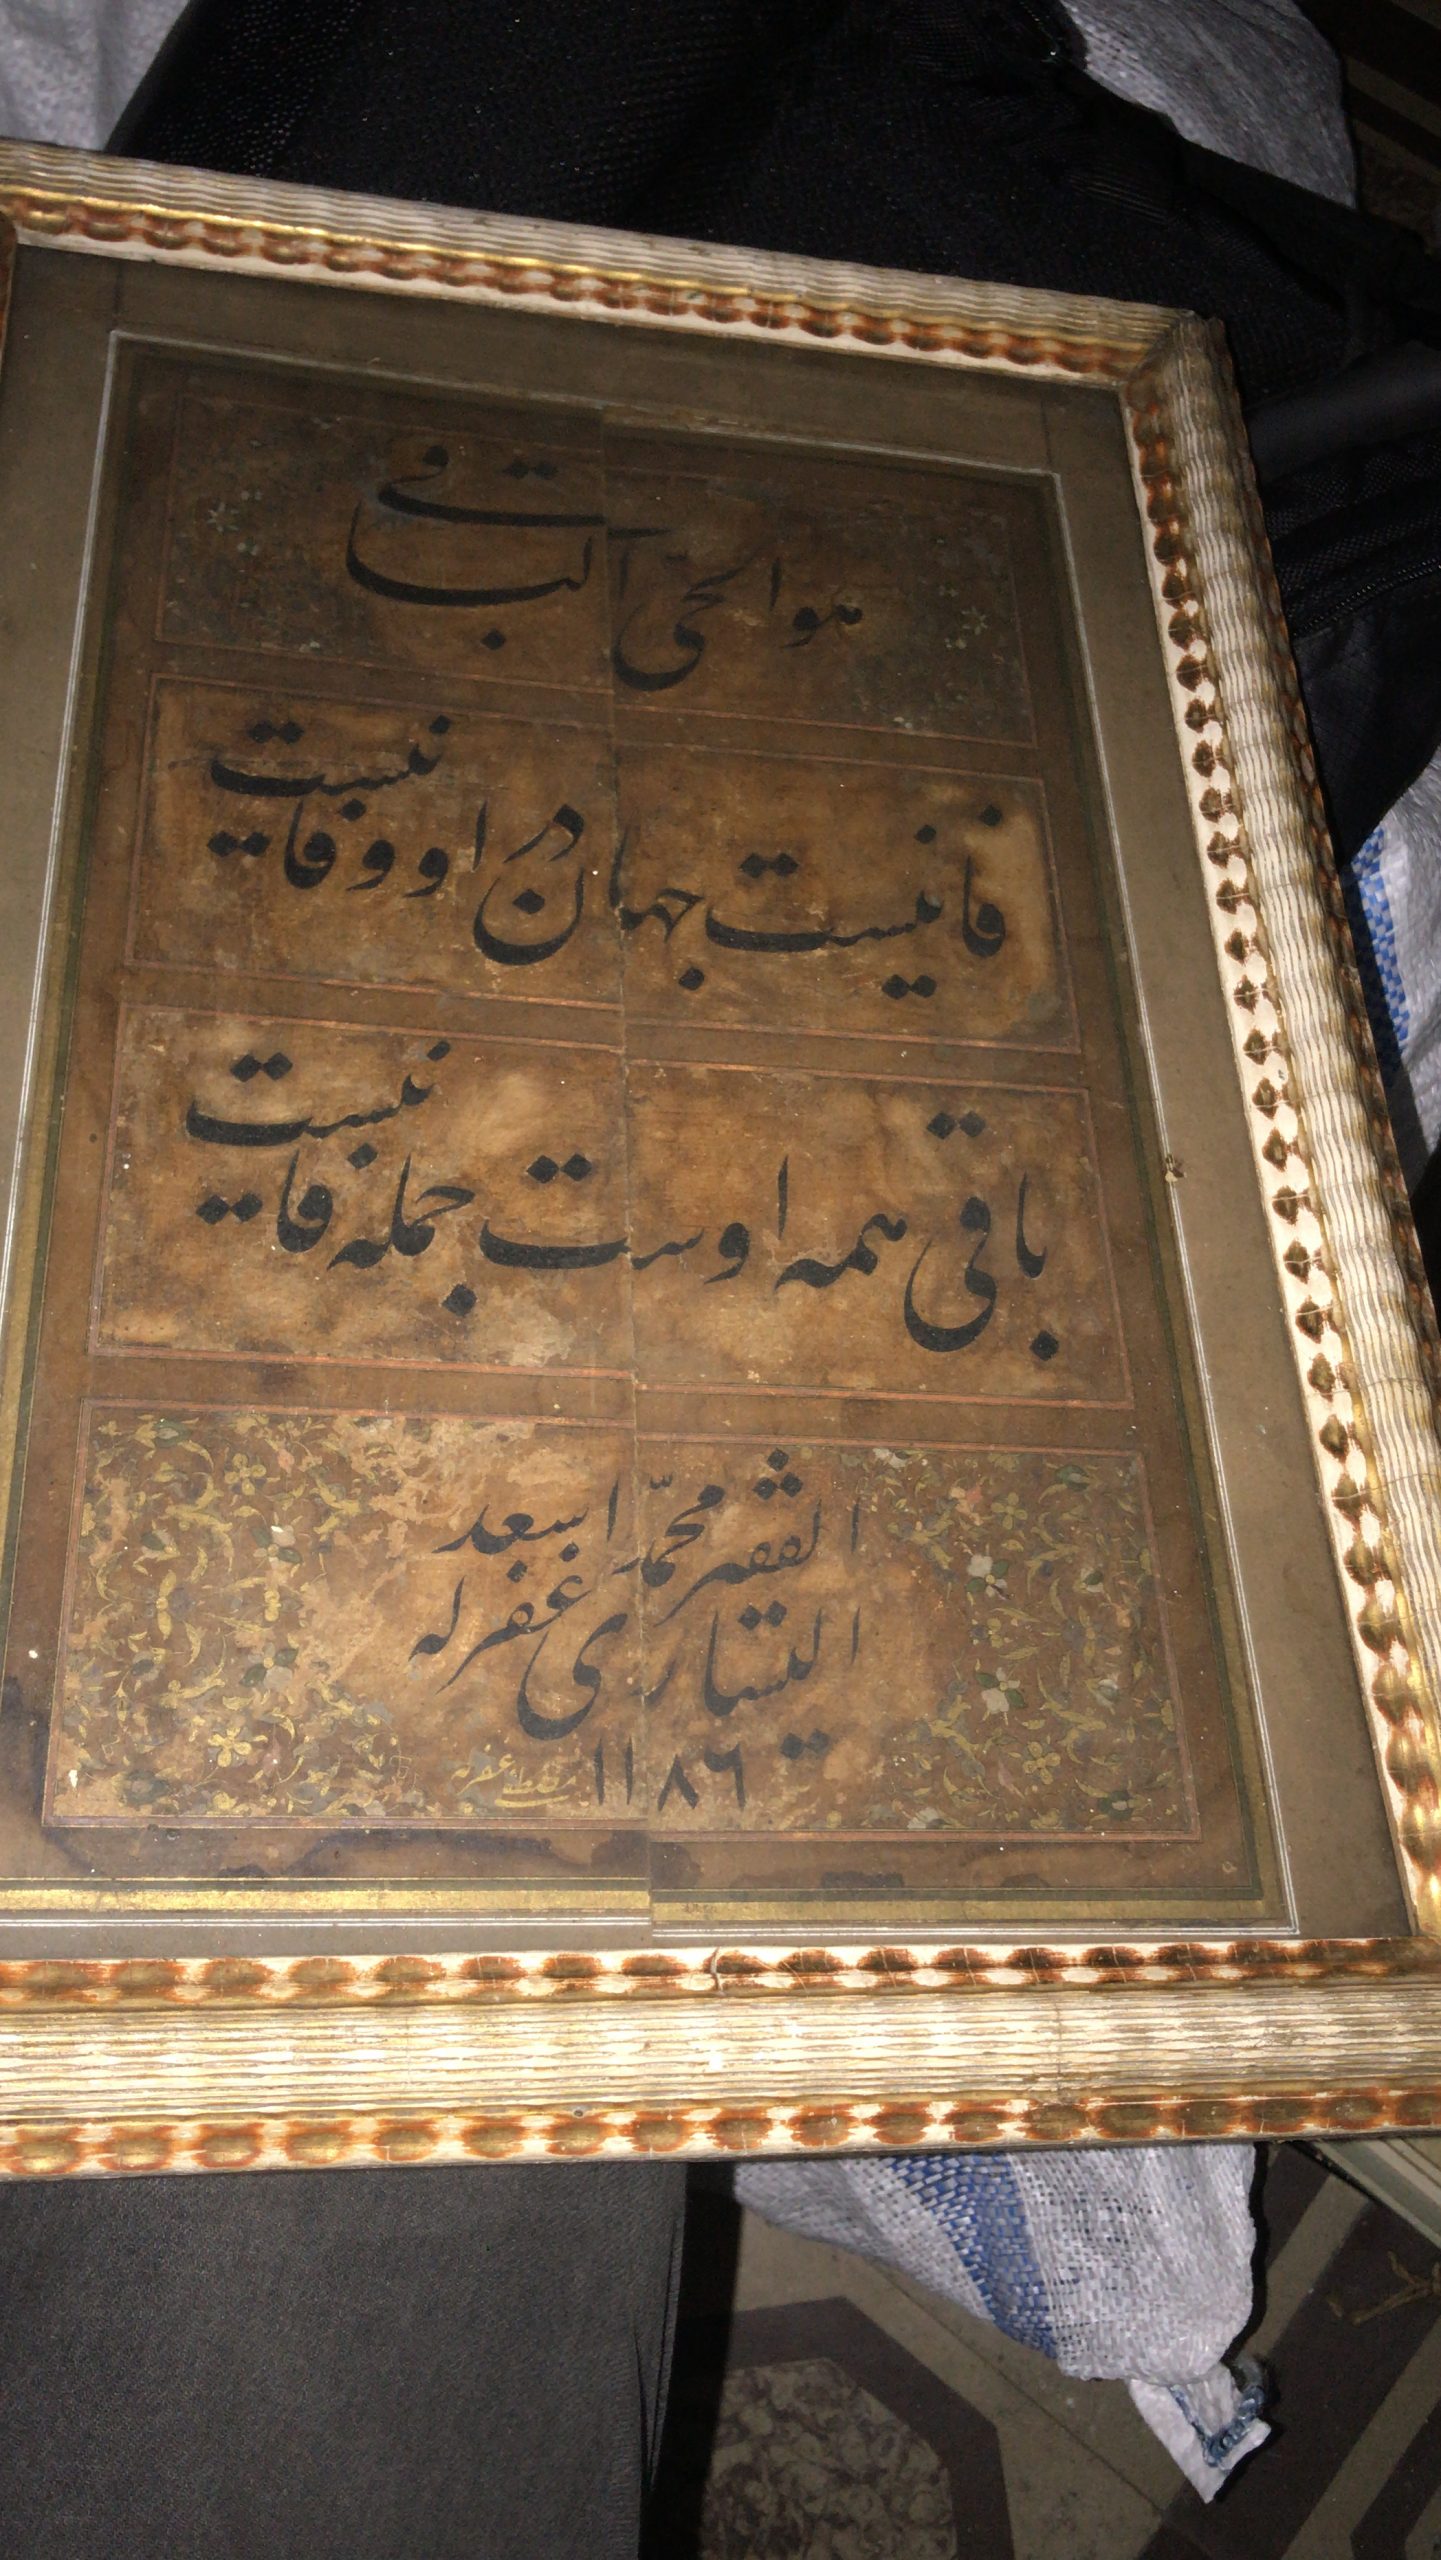 هو الحیّ الباقی
فانیست جهان درو وفا نیست
باقی همه اوست جمله فانیست
الفقیر محمّد اسعد
الیساری غفر له
۱۱۸۶